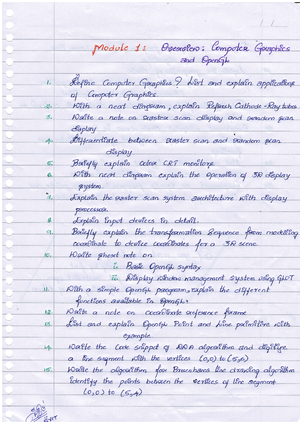 Module 1: Overview: Computer Graphics
and OpenGL
1. Define Computer Graphics? List and explain applications
of Computer Graphics.
2. With a neat diagram, explain Refresh Cathode-Ray tubes
3. Write a note on raster scan display and random scan
display
4. Differentiate between raster scan and random scan
display
5. Briefly explain color CRT monitors.
6. With neat diagram explain the operation of 3D display
system
7. Explain the raster scan system architecture with display
processor.
8. Explain input devices in detail.
9. Briefly explain the transformation sequence from modelling
coordinate to device coordinates for a 3D scene
10. Write short note on
i. Basic OpenGL syntax
ii. Display window management system using GLUT
11. With a simple OpenGL program, explain the different
functions available in OpenGL.
12. Write a note on coordinate reference frame
13. List and explain OpenGL Point and Line primitive with
example
14. Write the code snippet of DDA algorithm and digitize
a line segment with the vertices (0,0) to (5,6)
15. Write the algorithm for Bresenhams line drawing algorithm
identify the points between the vertices of line segment
(0,0) to (5,4)